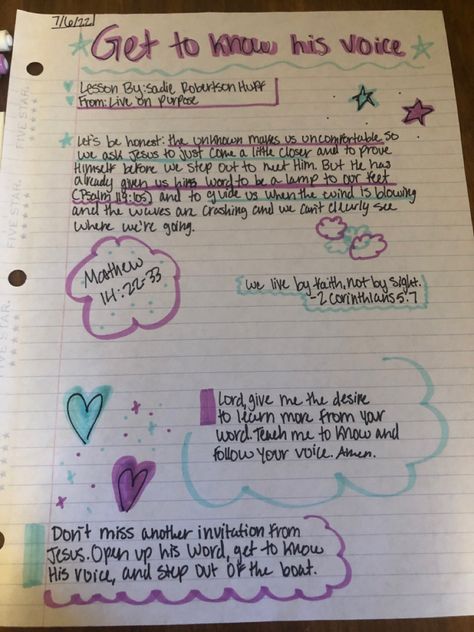 7/6/22
Get to know his voice
Lesson By: Sadie Robertson Huff
From: Live on Purpose
Let's be honest: the unknown makes us uncomfortable so
we ask Jesus to just come a little closer and to prove
Himself before we step out to meet Him. But He has
already given us his word to be a lamp to our feet
(Psalm 119:105) and to guide us when the wind is blowing
and the waves are crashing and we can't clearly see
where we're going.
Matthew
14:22-33
We live by faith, not by sight.
-2 Corinthians 5:7
Lord, give me the desire
to learn more from your
word. Teach me to know and
follow your voice. Amen.
Don't miss another invitation from
Jesus. Open up his word, get to know
His voice, and step out of the boat.
FIVE STAR.
FIVE STAR.